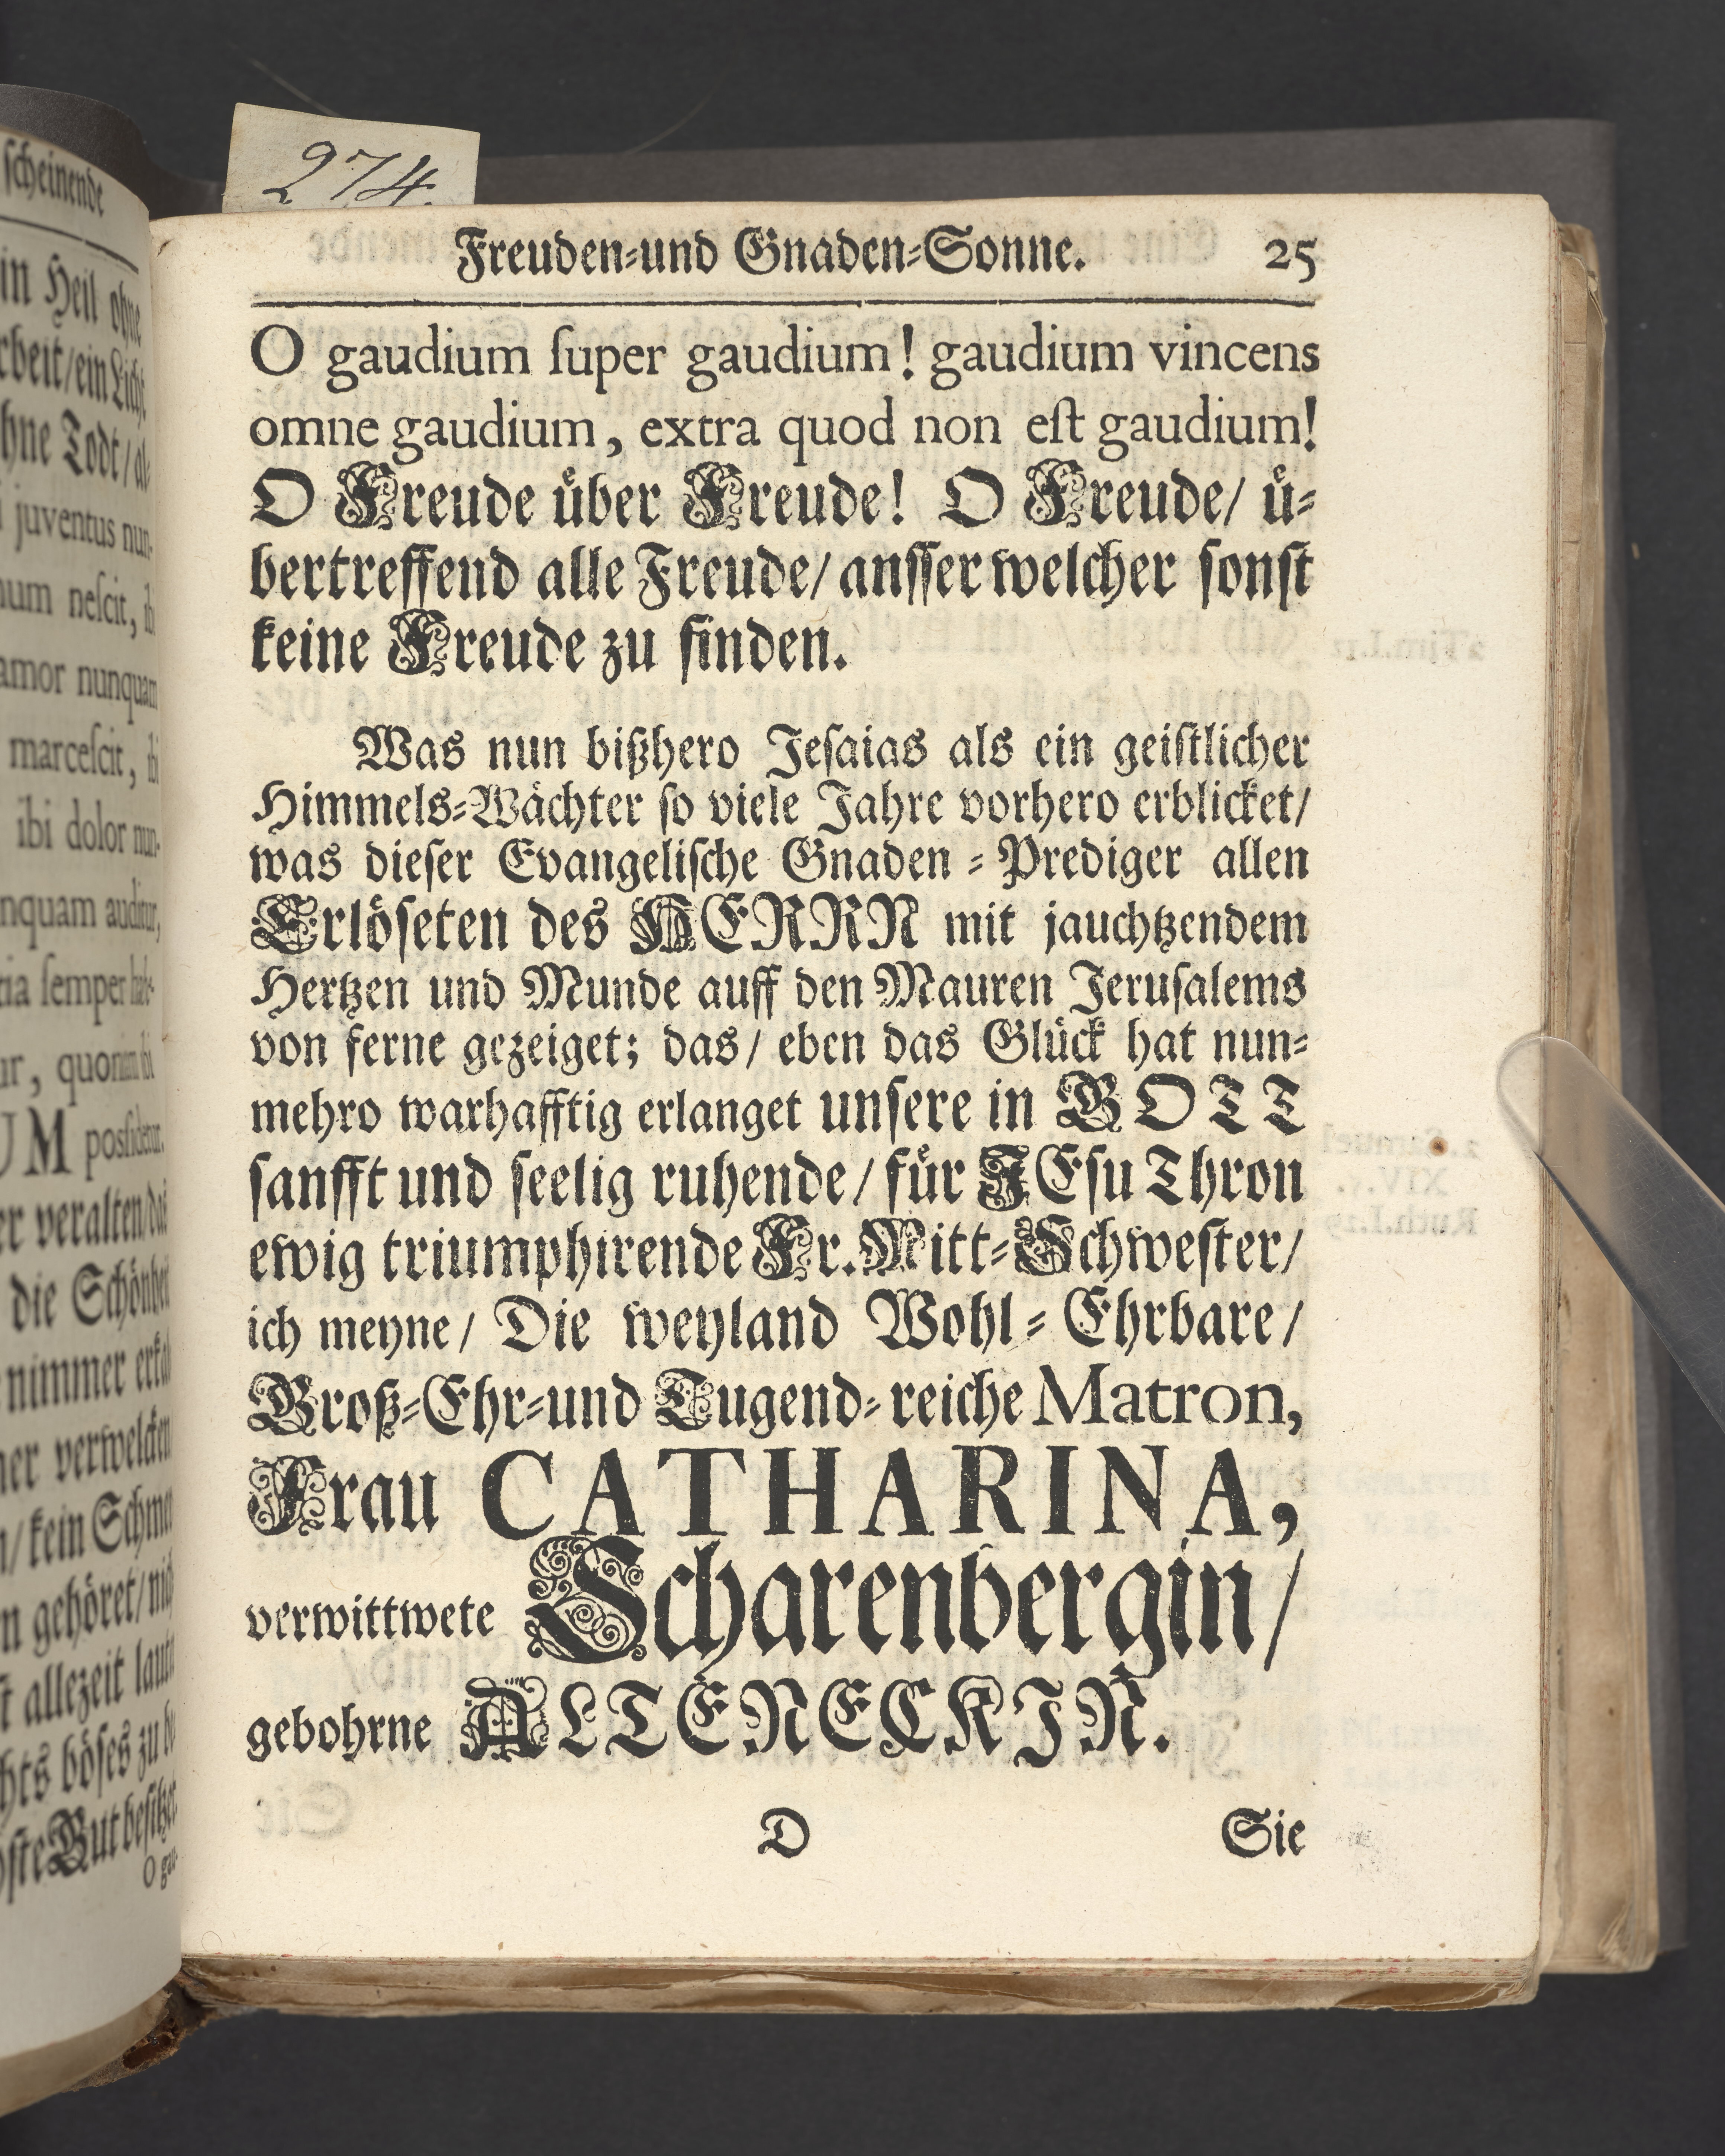 274.
scheinende
in Heil ohne
rbeit/ein Licht
hne Todt/al-
i juventus nun-
num neſcit, ibi
amor nunquam
marceſcit, ibi
ibi dolor nun-
nquam auditur,
tia ſemper
ur, quoniam ibi
UM posſidetur.
er veralten/das
die Schönheit
nimmer
ner verwelcken
n/kein Schmertz
n gehöret/
ſt allezeit
hts böſes zu
ſte Gut beſitzet.
O gau-
Freuden-und Gnaden-Sonne. 25
O gaudium ſuper gaudium! gaudium vincens
omne gaudium, extra quod non eſt gaudium!
O Freude uͤber Freude! O Freude/ uͤ-
bertreffend alle Freude/ anſſer welcher ſonſt
keine Freude zu finden.
Was nun bißhero Jeſaias als ein geiſtlicher
Himmels-Waͤchter ſo viele Jahre vorhero erblicket/
was dieſer Evangeliſche Gnaden-Prediger allen
Erloͤſeten des HERRN mit jauchtzendem
Hertzen und Munde auff den Mauren Jeruſalems
von ferne gezeiget; das/ eben das Gluͤck hat nun-
mehro warhafftig erlanget unſere in GOTT
ſanfft und ſeelig ruhende/ fuͤr JEſu Thron
ewig triumphirende Fr. Mitt-Schweſter/
ich meyne/ Die weyland Wohl-Ehrbare/
Groß-Ehr-und Tugend-reiche Matron,
Frau CATHARINA,
verwittwete Scharenbergin/
gebohrne ALTENECKJN.
D Sie